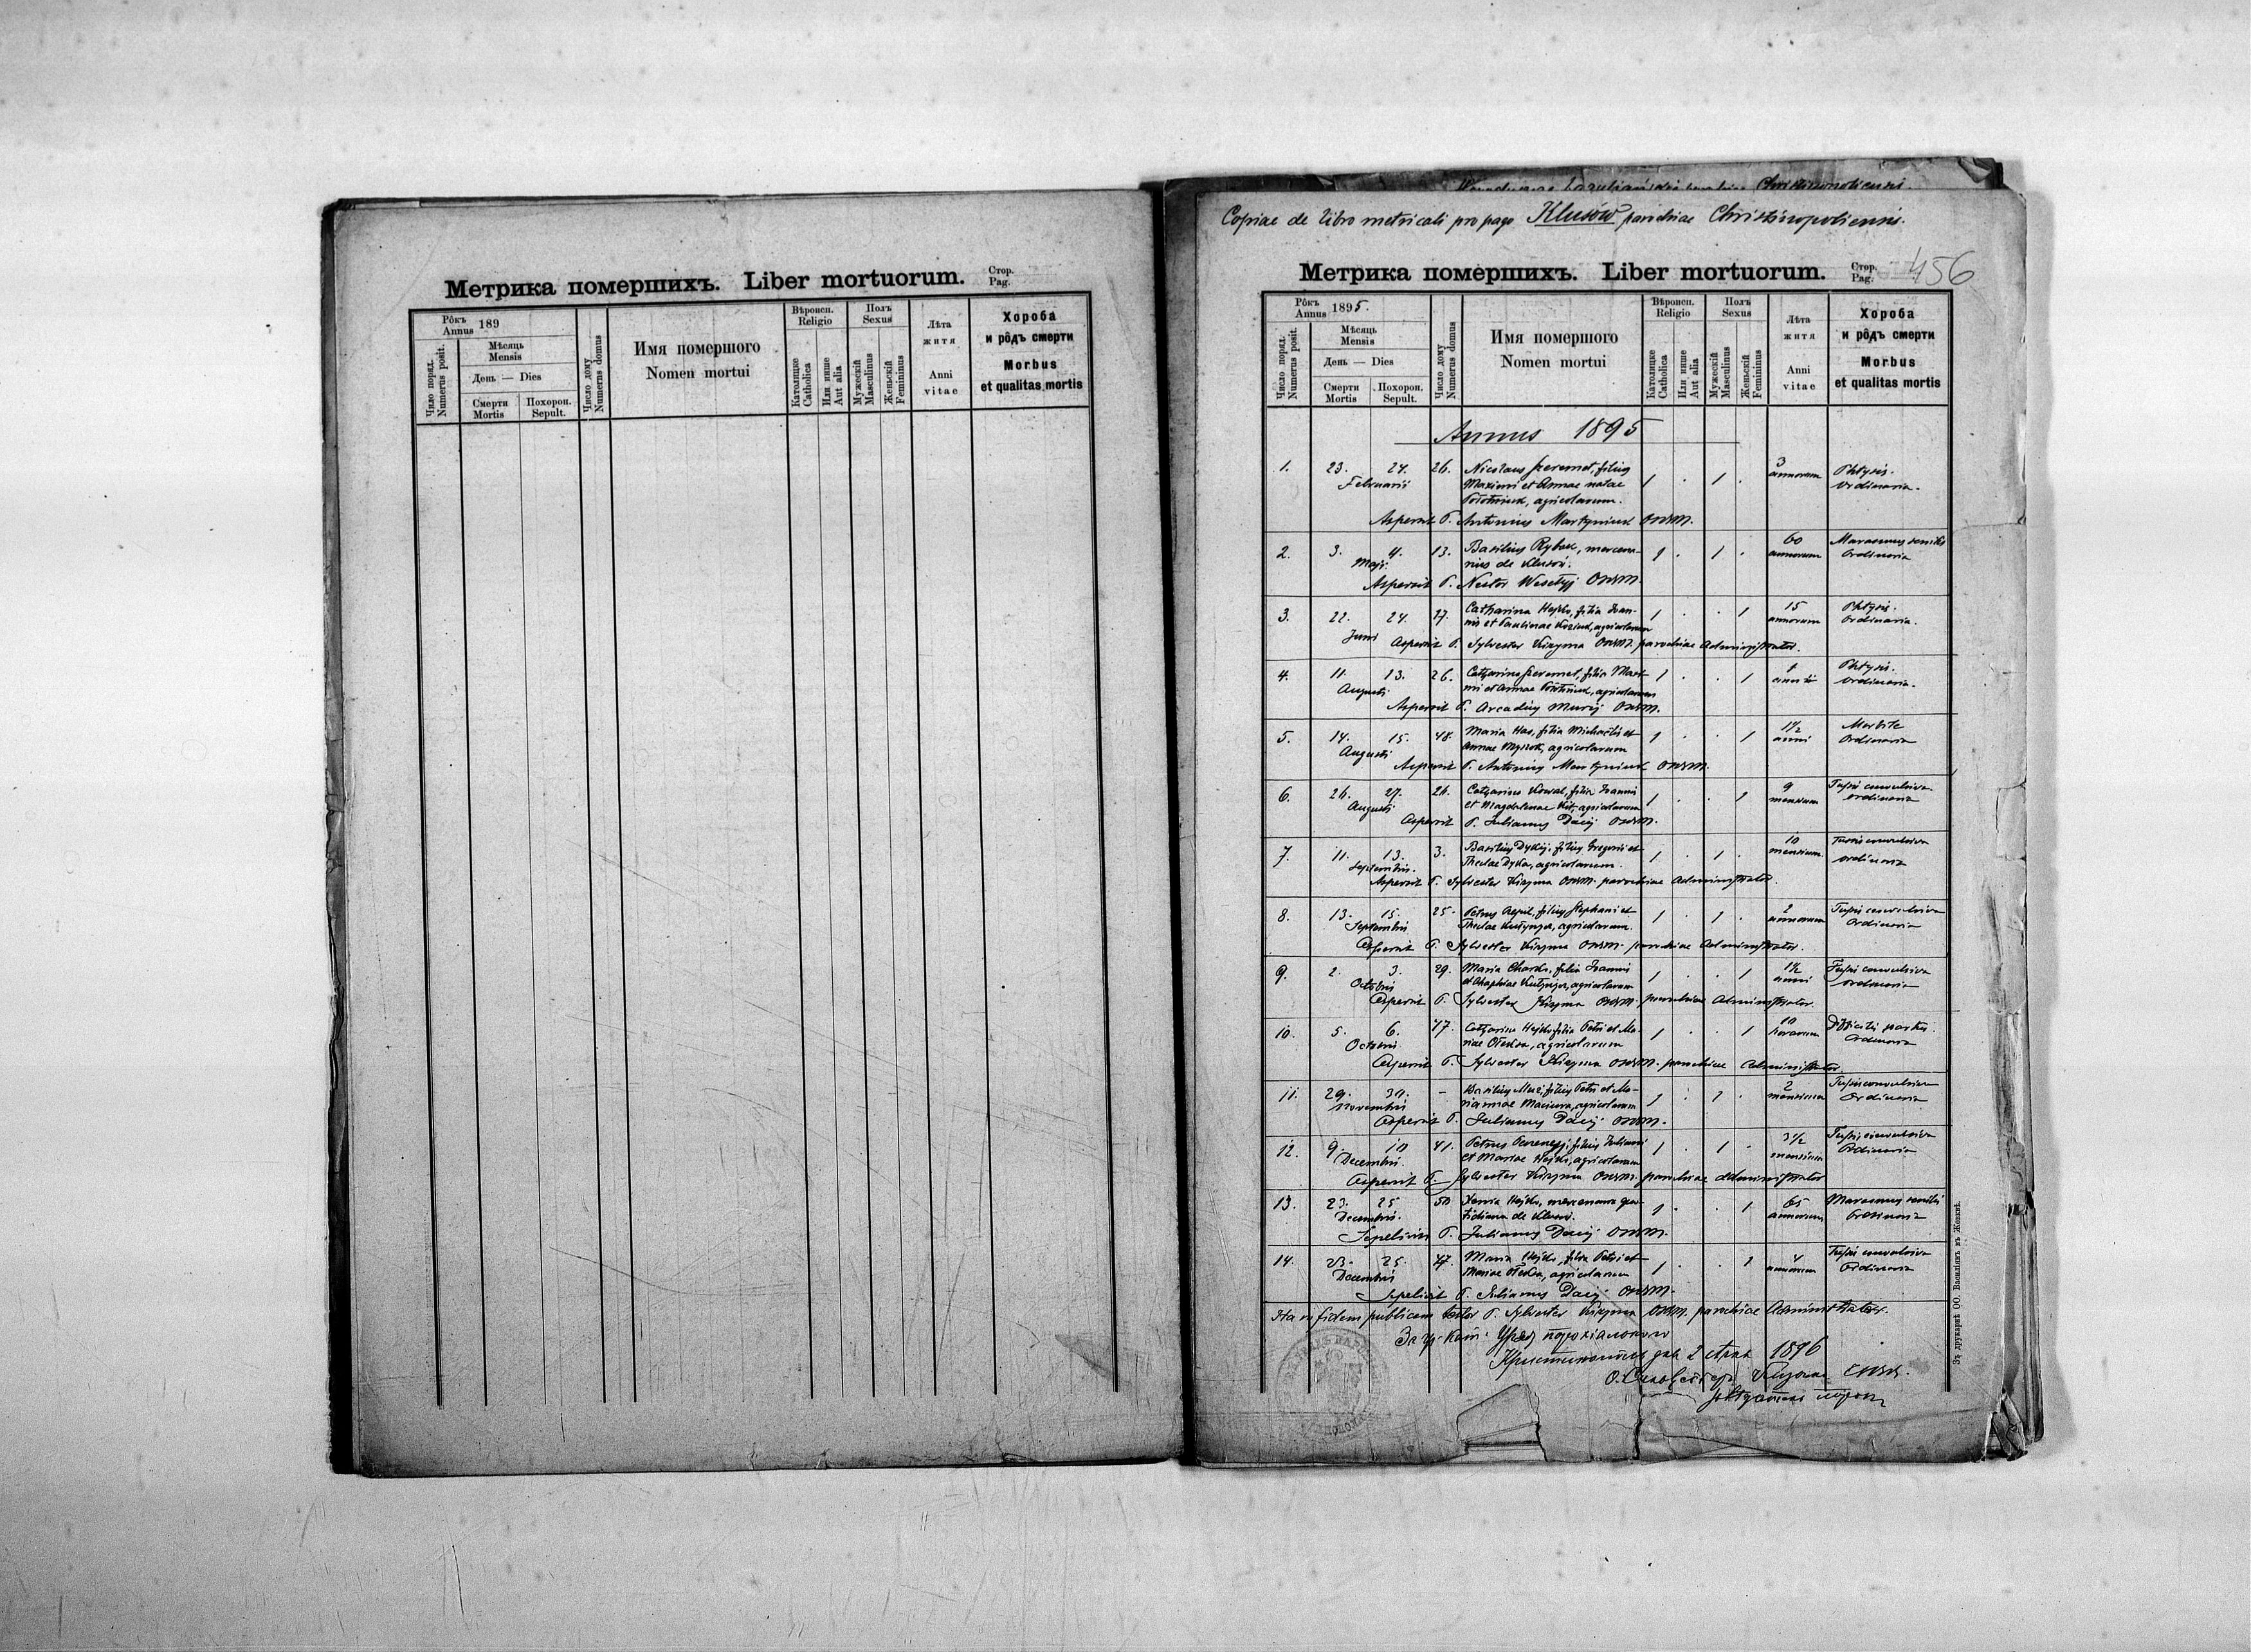 Метрика помершихъ. Liber mortuorum.
Стор.
Pag.
Рôкъ
Annus 189
Число поряд.
Numerus posit.
Мѣсяць
Mensis
День — Dies
Смерти
Mortis
Похорон.
Sepult.
Число дому
Numerus domus
Имя помершого
Nomen mortui
Вѣроисп.
Religio
Католицке
Catholica
Или инше
Aut alia
Полъ
Sexus
Мужескій
Masculinus
Женьскій
Femininus
Лѣта
житя
Anni
vitae
Хороба
и рôдъ смерти
Morbus
et qualitas mortis
Christinopoliensi.
Copiae de libro metricali pro pago Klusów parochiae Christinopoliensis.
Метрика помершихъ. Liber mortuorum.
Стор.
Pag.
456
Рôкъ
Annus 1895.
Число поряд.
Numerus posit.
Мѣсяць
Mensis
День — Dies
Смерти
Mortis
Похорон.
Sepult.
Число дому
Numerus domus
Имя помершого
Nomen mortui
Вѣроисп.
Religio
Католицке
Catholica
Или инше
Aut alia
Полъ
Sexus
Мужескій
Masculinus
Женьскій
Femininus
Лѣта
житя
Anni
vitae
Хороба
и рôдъ смерти
Morbus
et qualitas mortis
Annus 1895
1. 23. 24. 26. Nicolaus Szeremet, filius 3 Phtysis.
Februarii Maximi et Annae natae 1 . 1 . annorum Ordinaria.
agricolarum.
Aspersit P. Antonius Martyniuk OSBM.
2. 3. 4. 13. Basilius Rybak, mercena- 1 . 1 . 60 Marasmus senilis
Maji. rius de Klusów. annorum Ordinaria
Aspersit P. Nestor Wesołyj OSBM.
3. 22. 24. 27. Catharina Hejko, filia Ioan- 1 . . 1 15 Phtysis.
Juni nis et Paulinae Koziuk, agricolarum annorum Ordinaria.
Aspersit P. Sylvester Kizyma OSBM. parochiae Administrator.
4. 11. 13. 26. Catharina Szeremet, filia Maxi- 1 . . 1 1 Phtysis.
Augusti mi et Annae agricolarum Ordinaria.
Aspersit P. Arcadius OSBM.
5. 14. 15. 48. Maria Has, filia Michaelis et 1 . . 1 1½
Augusti Annae agricolarum anni Ordinaria
Aspersit P. Antonius Martyniuk OSBM.
6. 26. 27. 24. Catharina Kowal, filia Ioannis 1 . . 1 9 Tussis convulsiva
Augusti et Magdalenae agricolarum mensium ordinaria
Aspersit P. Julianus Dacij OSBM.
7. 11. 13. 3. Basilius Dykij, filius Gregorii et 1 . 1 . 10 Tussis convulsiva
Septembris. Theclae Dyka, agricolarum. mensium ordinaria
Aspersit P. Sylvester Kizyma OSBM. parochiae Administrator.
8. 13. 15. 25. Petrus filius Stephani et 1 . 1 . 2 Tussis convulsiva
Septembris Theclae agricolarum. annorum Ordinaria
Aspersit P. Sylvester Kizyma OSBM. parochiae Administrator.
9. 2. 3. 29. Maria filia Ioannis 1 . . 1 1½ Tussis convulsiva
Octobris et agricolarum anni ordinaria
Aspersit P. Sylvester Kizyma OSBM. parochiae Administrator.
10. 5. 6. 47. Catharina Hejko filia Petri et Ma- 1 . . 1 10 Difficilis partus.
Octobris riae agricolarum horarum Ordinaria
Aspersit P. Sylvester Kizyma OSBM. parochiae Administrator
11. 29. 30. - Basilius filius Petri et Ma- 1 . 1 . 2 Tussis convulsiva
Novembris riannae agricolarum mensium Ordinaria
Aspersit P. Julianus Dacij OSBM.
12. 9. 10 41. Petrus filius Juliani 1 . 1 . 3½ Tussis convulsiva
Decembris. et Mariae Hejko, agricolarum mensium Ordinaria
Aspersit P. Sylvester Kizyma OSBM. parochiae Administrator
13. 23. 25 50 Xenia Hejko, mercenaria quo- 1 . . 1 65 Marasmus senilis
Decembris. tidiana de Klusów. annorum Ordinaria
Sepelivit P. Julianus Dacij OSBM.
14. 23. 25. 47. Maria Hejko, filia Petri et 1 . . 1 4 Tussis convulsiva
Decembris Mariae agricolarum annorum Ordinaria
Sepelivit P. Julianus Dacij OSBM.
Ita in fidem publicam testor P. Sylvester Kizyma OSBM. parochiae Administrator.
1896
Зъ друкарнѣ ОО. Василіянъ въ Жовквѣ.